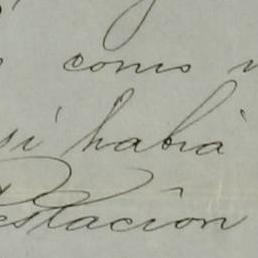 como
si había
estación